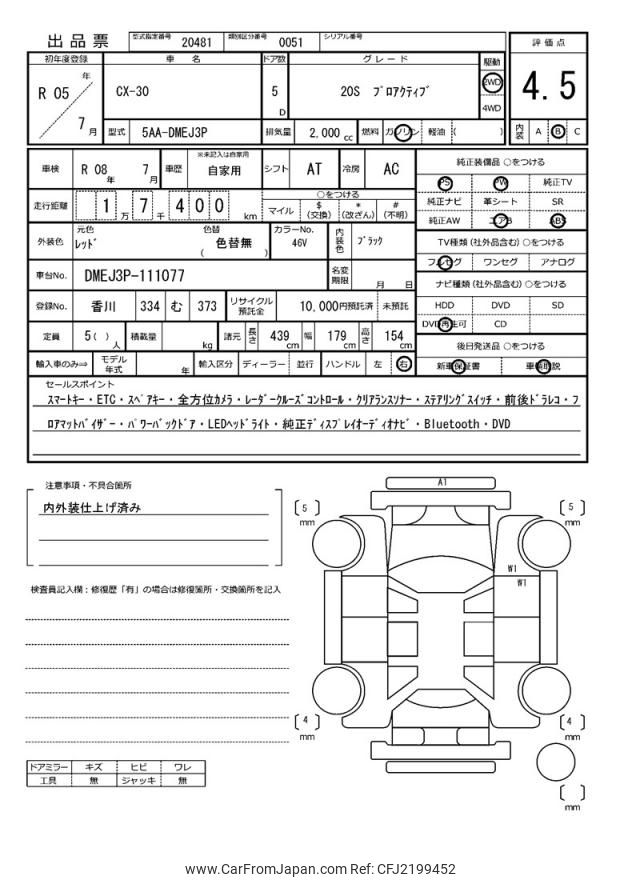 出品票 型式指定番号 20481 類別区分番号 0051 シリアル番号
評価点
4.5
内装 A B C
初年度登録 車名 ドア数 グレード 駆動
R 05 年 7 月 CX-30 5 D 20S プロアクティブ 2WD 4WD
型式 5AA-DMEJ3P 排気量 2,000 cc 燃料 ガソリン 軽油 ( )
車検 R 08 年 7 月 車歴 ※未記入は自家用 自家用 シフト AT 冷房 AC
走行距離 1 万 7 千 4 0 0 km ○をつける マイル $ (交換) * (改ざん) # (不明)
外装色 元色 レッド 色替 ( 色替無 ) カラーNo. 46V 内装色 ブラック
車台No. DMEJ3P-111077 名変期限 月 日
登録No. 香川 334 む 373 リサイクル預託金 10,000円預託済 未預託
定員 5( ) 人 積載量 kg 諸元 長さ 439 cm 幅 179 cm 高さ 154 cm
輸入車のみ⇒ モデル年式 年 輸入区分 ディーラー 並行 ハンドル 左 右
純正装備品 ○をつける
PS PW 純正TV
純正ナビ 革シート SR
純正AW エアB ABS
TV種類(社外品含む) ○をつける
フルセグ ワンセグ アナログ
ナビ種類(社外品含む) ○をつける
HDD DVD SD
DVD再生可 CD
後日発送品 ○をつける
新車保証書 車輌取説
セールスポイント
スマートキー・ETC・スペアキー・全方位カメラ・レーダークルーズコントロール・クリアランスソナー・ステアリングスイッチ・前後ドラレコ・フ
ロアマットバイザー・パワーバックドア・LEDヘッドライト・純正ディスプレイオーディオナビ・Bluetooth・DVD
注意事項・不具合箇所
内外装仕上げ済み
検査員記入欄：修復歴「有」の場合は修復箇所・交換箇所を記入
ドアミラー キズ ヒビ ワレ
工具 無 ジャッキ 無
A1
5 mm
5 mm
W1
W1
4 mm
4 mm
mm
www.CarFromJapan.com Ref: CFJ2199452